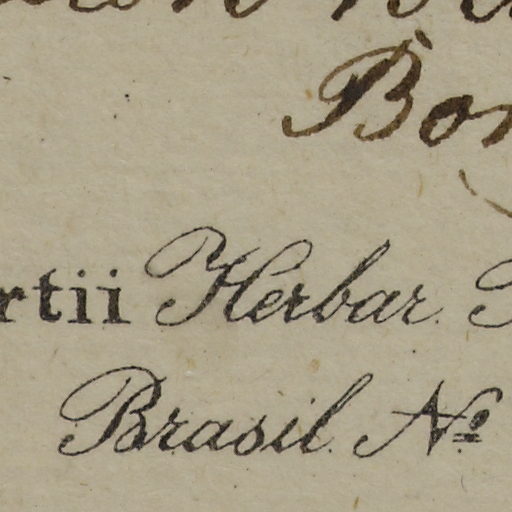 Bon
rtii Herbar.
Brasil. Nº